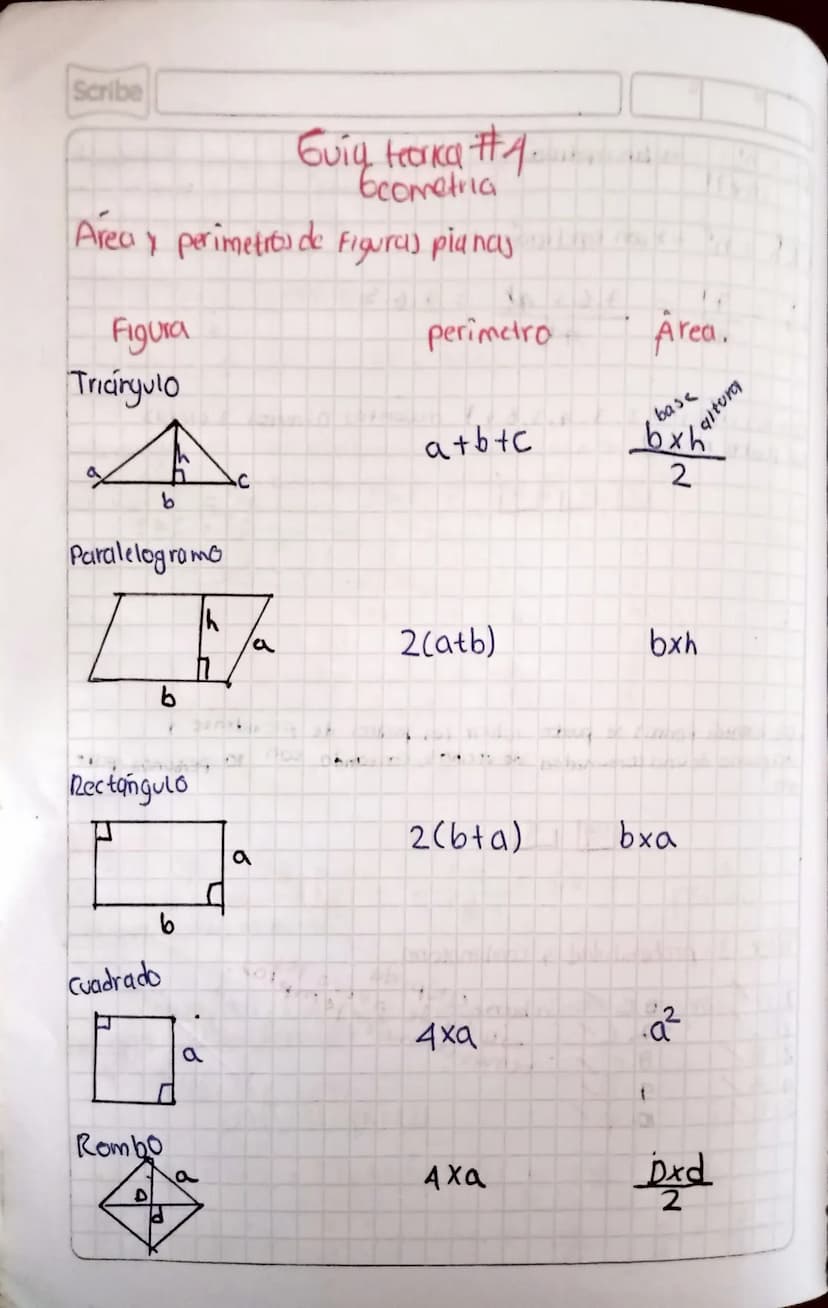 Scribe
Guia teorica #1.
Geometria
Área y perimetros de Figuras planas
Figura perimetro Área.
Triángulo
a h b c
a+b+c
base altura
bxh
2
Paralelogramo
h a b
2(a+b) bxh
Rectángulo
a b
2(b+a) bxa
Cuadrado
a
4xa a²
Rombo
a D d
4xa
Dxd
2